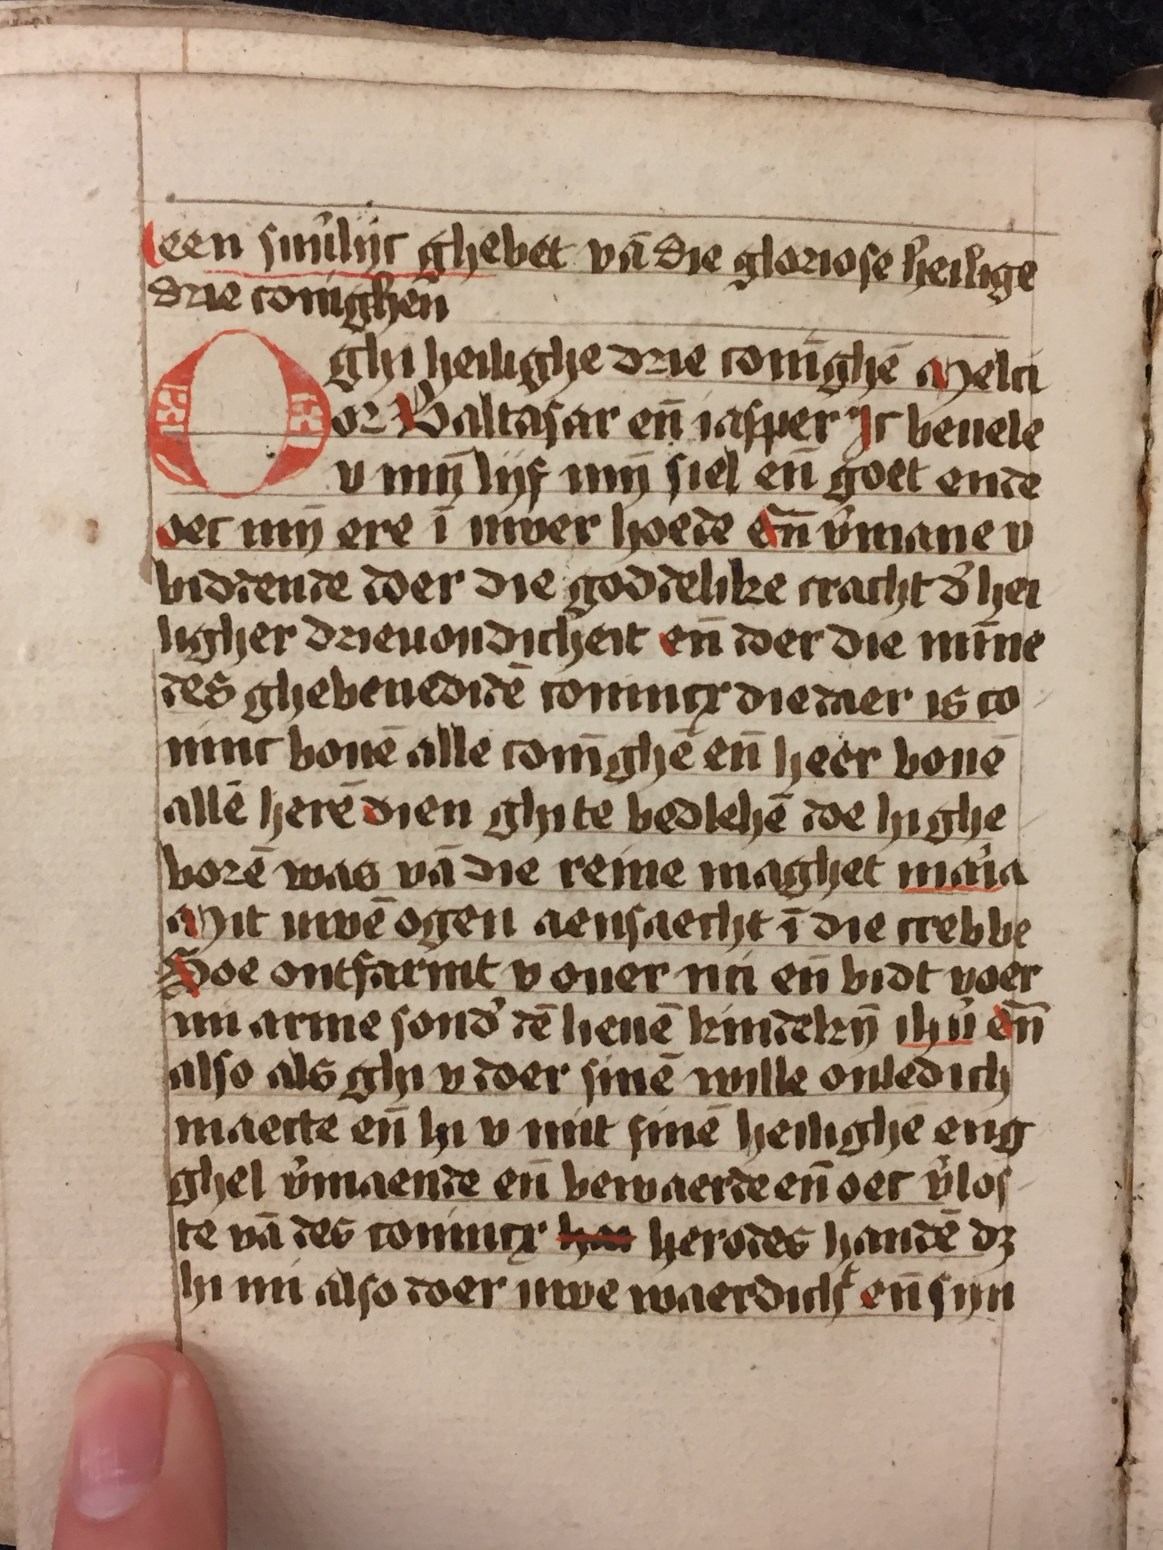 een sinūlijc ghebet vā die gloriose heilige
drie conighen̄
O ghi heilighe drie coniḡhē Melci
or Baltasar en̄ iasper Ic beuele
v mīj lijf mīj siel en̄ goet ende
oec mīj ere ī uwer hoede en̄ v̓mane v
biddende doer die goddelike cracht d̓ hei
ligher drieuondicheit en̄ doer die mīne
des ghebenedidē conincx die daer is co
ninc bouē alle coniḡhē en̄ heer bouē
allē herē dien ghi te bedlehē doe hi ghe
borē was vā die reine maghet mar̓ia
Mit uwē ogen aensaecht ī die crebbe
Soe ontfarmt v ouer mi en̄ bidt voer
mi arme sond̓ dē lieuē kindekīj ihū en̄
also als ghi v doer sinē wille onledich
maecte en̄ hi v mit sinē heilighē eng
ghel v̓maende en̄ bewaerde en̄ oec v̓los
te vā des conincx herodes handē dz
hi mi also doer uwe waerdichᵗ en̄ sijn